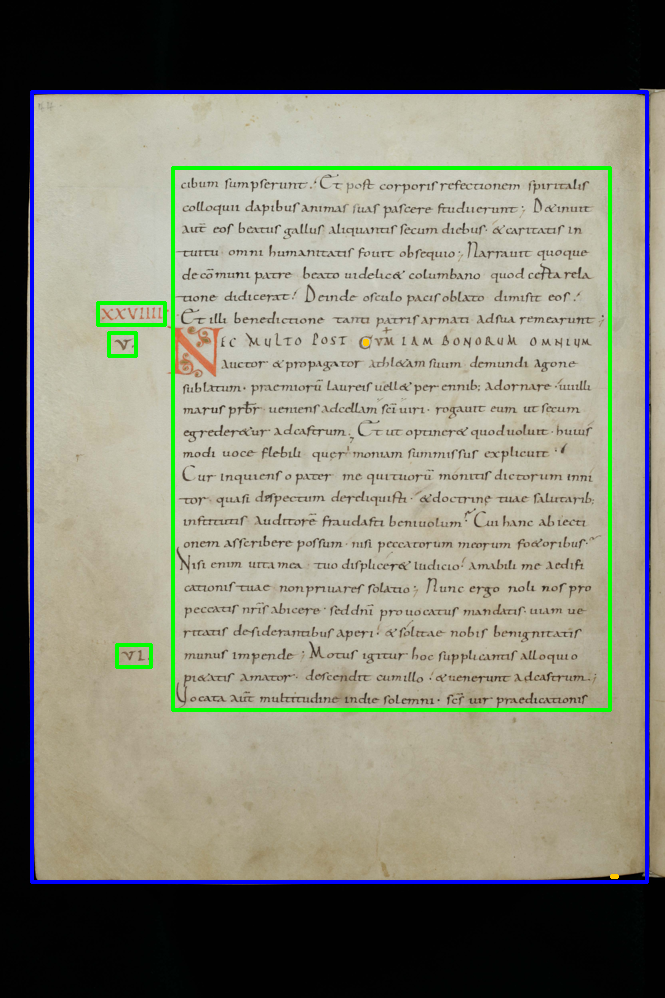 44
cibum sumpserunt. Et post corporis refectionem spiritalis
colloquii dapibus animas suas pascere studuerunt; Detinuit
aut̄ eos beatus gallus aliquantis secum diebus. & caritatis in
tuitu omni humanitatis fouit obsequio; Narrauit quoque
de cōmuni patre beato uidelic& columbano quod certa rela
tione didicerat. Deinde osculo pacis oblato dimisit eos.
Et illi benedictione tanti patris armati ad sua remearunt;
XXVIIII
V.
NEC MULTO POST CUM IAM BONORUM OMNIUM
auctor & propagator athl&am suum demundi agone
sublatum. praemiorū laureis uell& perennib; adornare. uuilli
marus prb̄r. ueniens ad cellam sc̄i uiri. rogauit eum ut secum
egreder&ur ad castrum. Et ut optiner& quod uoluit. huius
modi uoce flebili querimoniam summissus explicuit.
Cur inquiens o pater me quituorū monitis dictorum inni
tor. quasi despectum dereliquisti. & doctrinę tuae salutarib;
institutis auditorē fraudasti beniuolum? Cui hanc abiecti
onem asscribere possum. nisi peccatorum meorum foetoribus.
Nisi enim uita mea tuo displicer& iudicio. amabili me aedifi
cationis tuae non priuares solatio; Nunc ergo noli nos pro
peccatis nr̄is abicere. sed dn̄i prouocatus mandatis. uiam ue
ritatis desiderantibus aperi. & solitae nobis benignitatis
VI.
munus impende; Motus igitur hoc supplicantis alloquio
pi&atis amator. descendit cum illo. & uenerunt ad castrum;
Uocata aut̄ multitudine in die solemni. sc̄s uir praedicationis